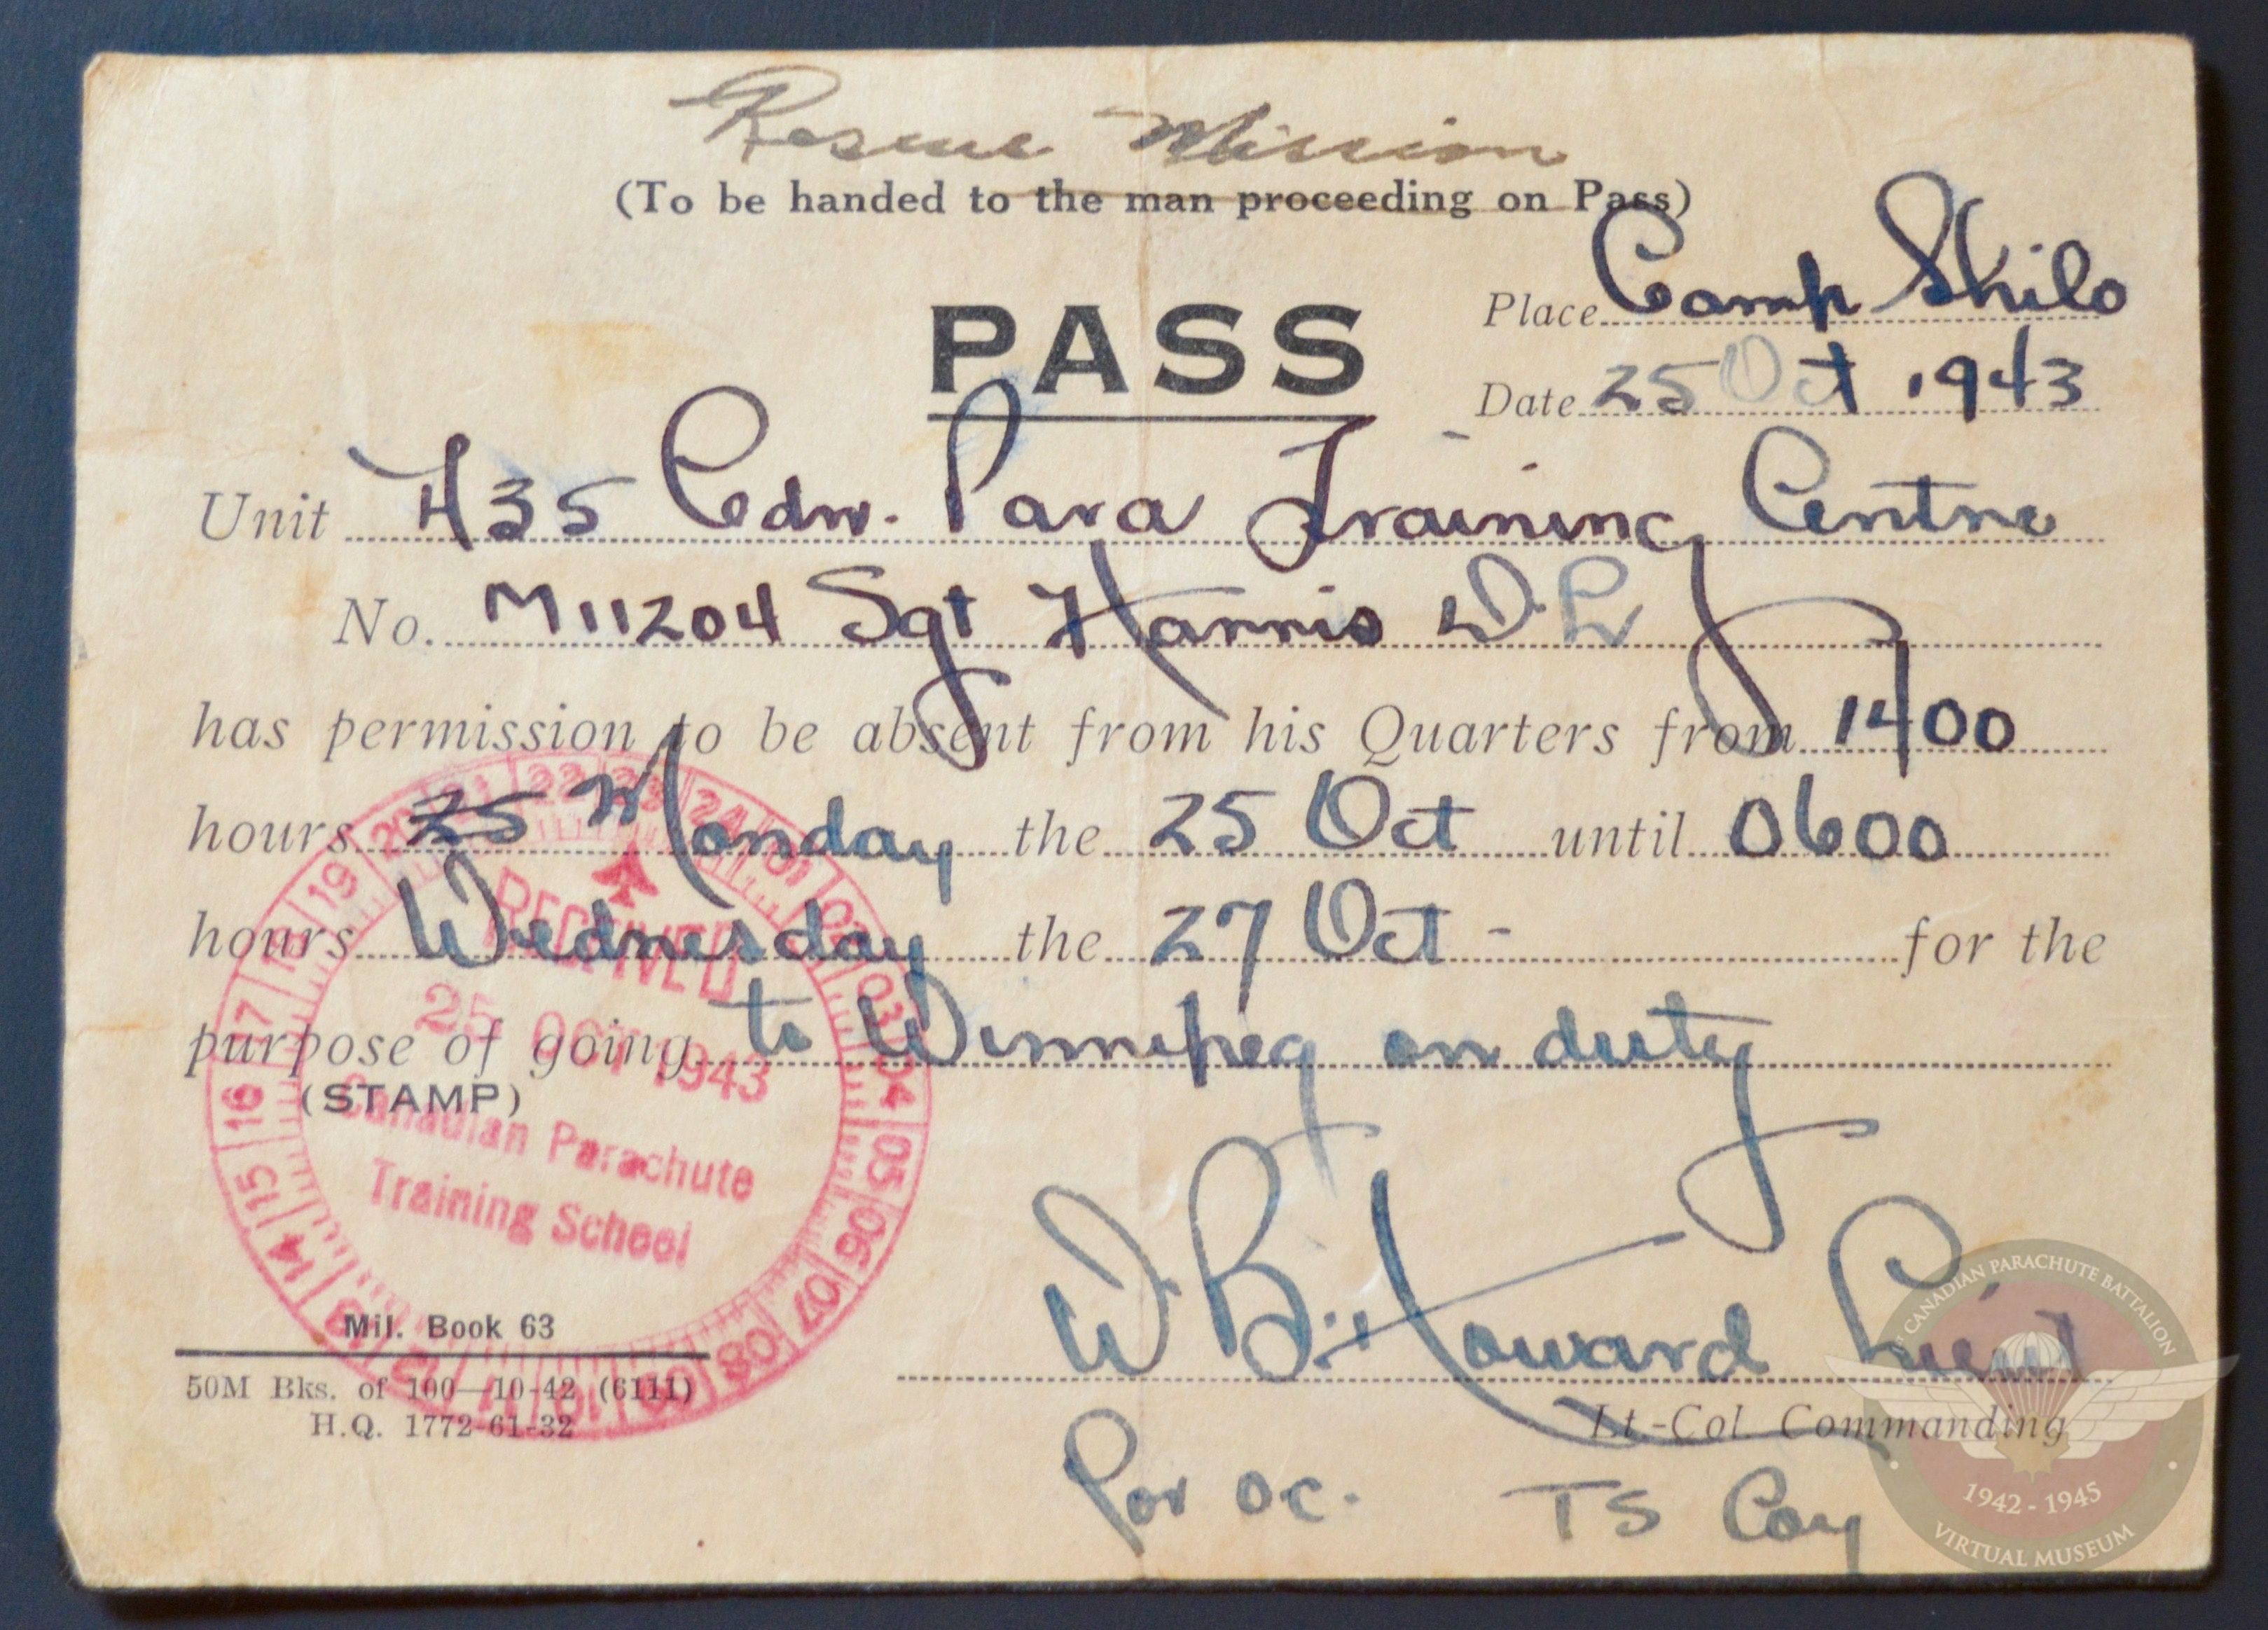 Rescue Mission
(To be handed to the man proceeding on Pass)
PASS
Place Camp Shilo
Date 25 Oct 1943
Unit A35 Cdn. Para Training Centre
No. M11204 Sgt Harris D.R
has permission to be absent from his Quarters from 1400
hours 25 Monday the 25 Oct until 0600
hours Wednesday the 27 Oct - for the
purpose of going to Winnipeg on duty
(STAMP)
19 20 21 22 23 24 01 02 03 04 05 06 07 08 09 10 11 12 13 14 15 16 17 18
RECEIVED
25 OCT 1943
Canadian Parachute
Training School
Mil. Book 63
50M Bks. of 100—10-42 (6111)
H.Q. 1772-61-32
W B. Howard Lieut
Lt-Col Commanding
For OC. TS Coy
1st CANADIAN PARACHUTE BATTALION
1942 - 1945
VIRTUAL MUSEUM